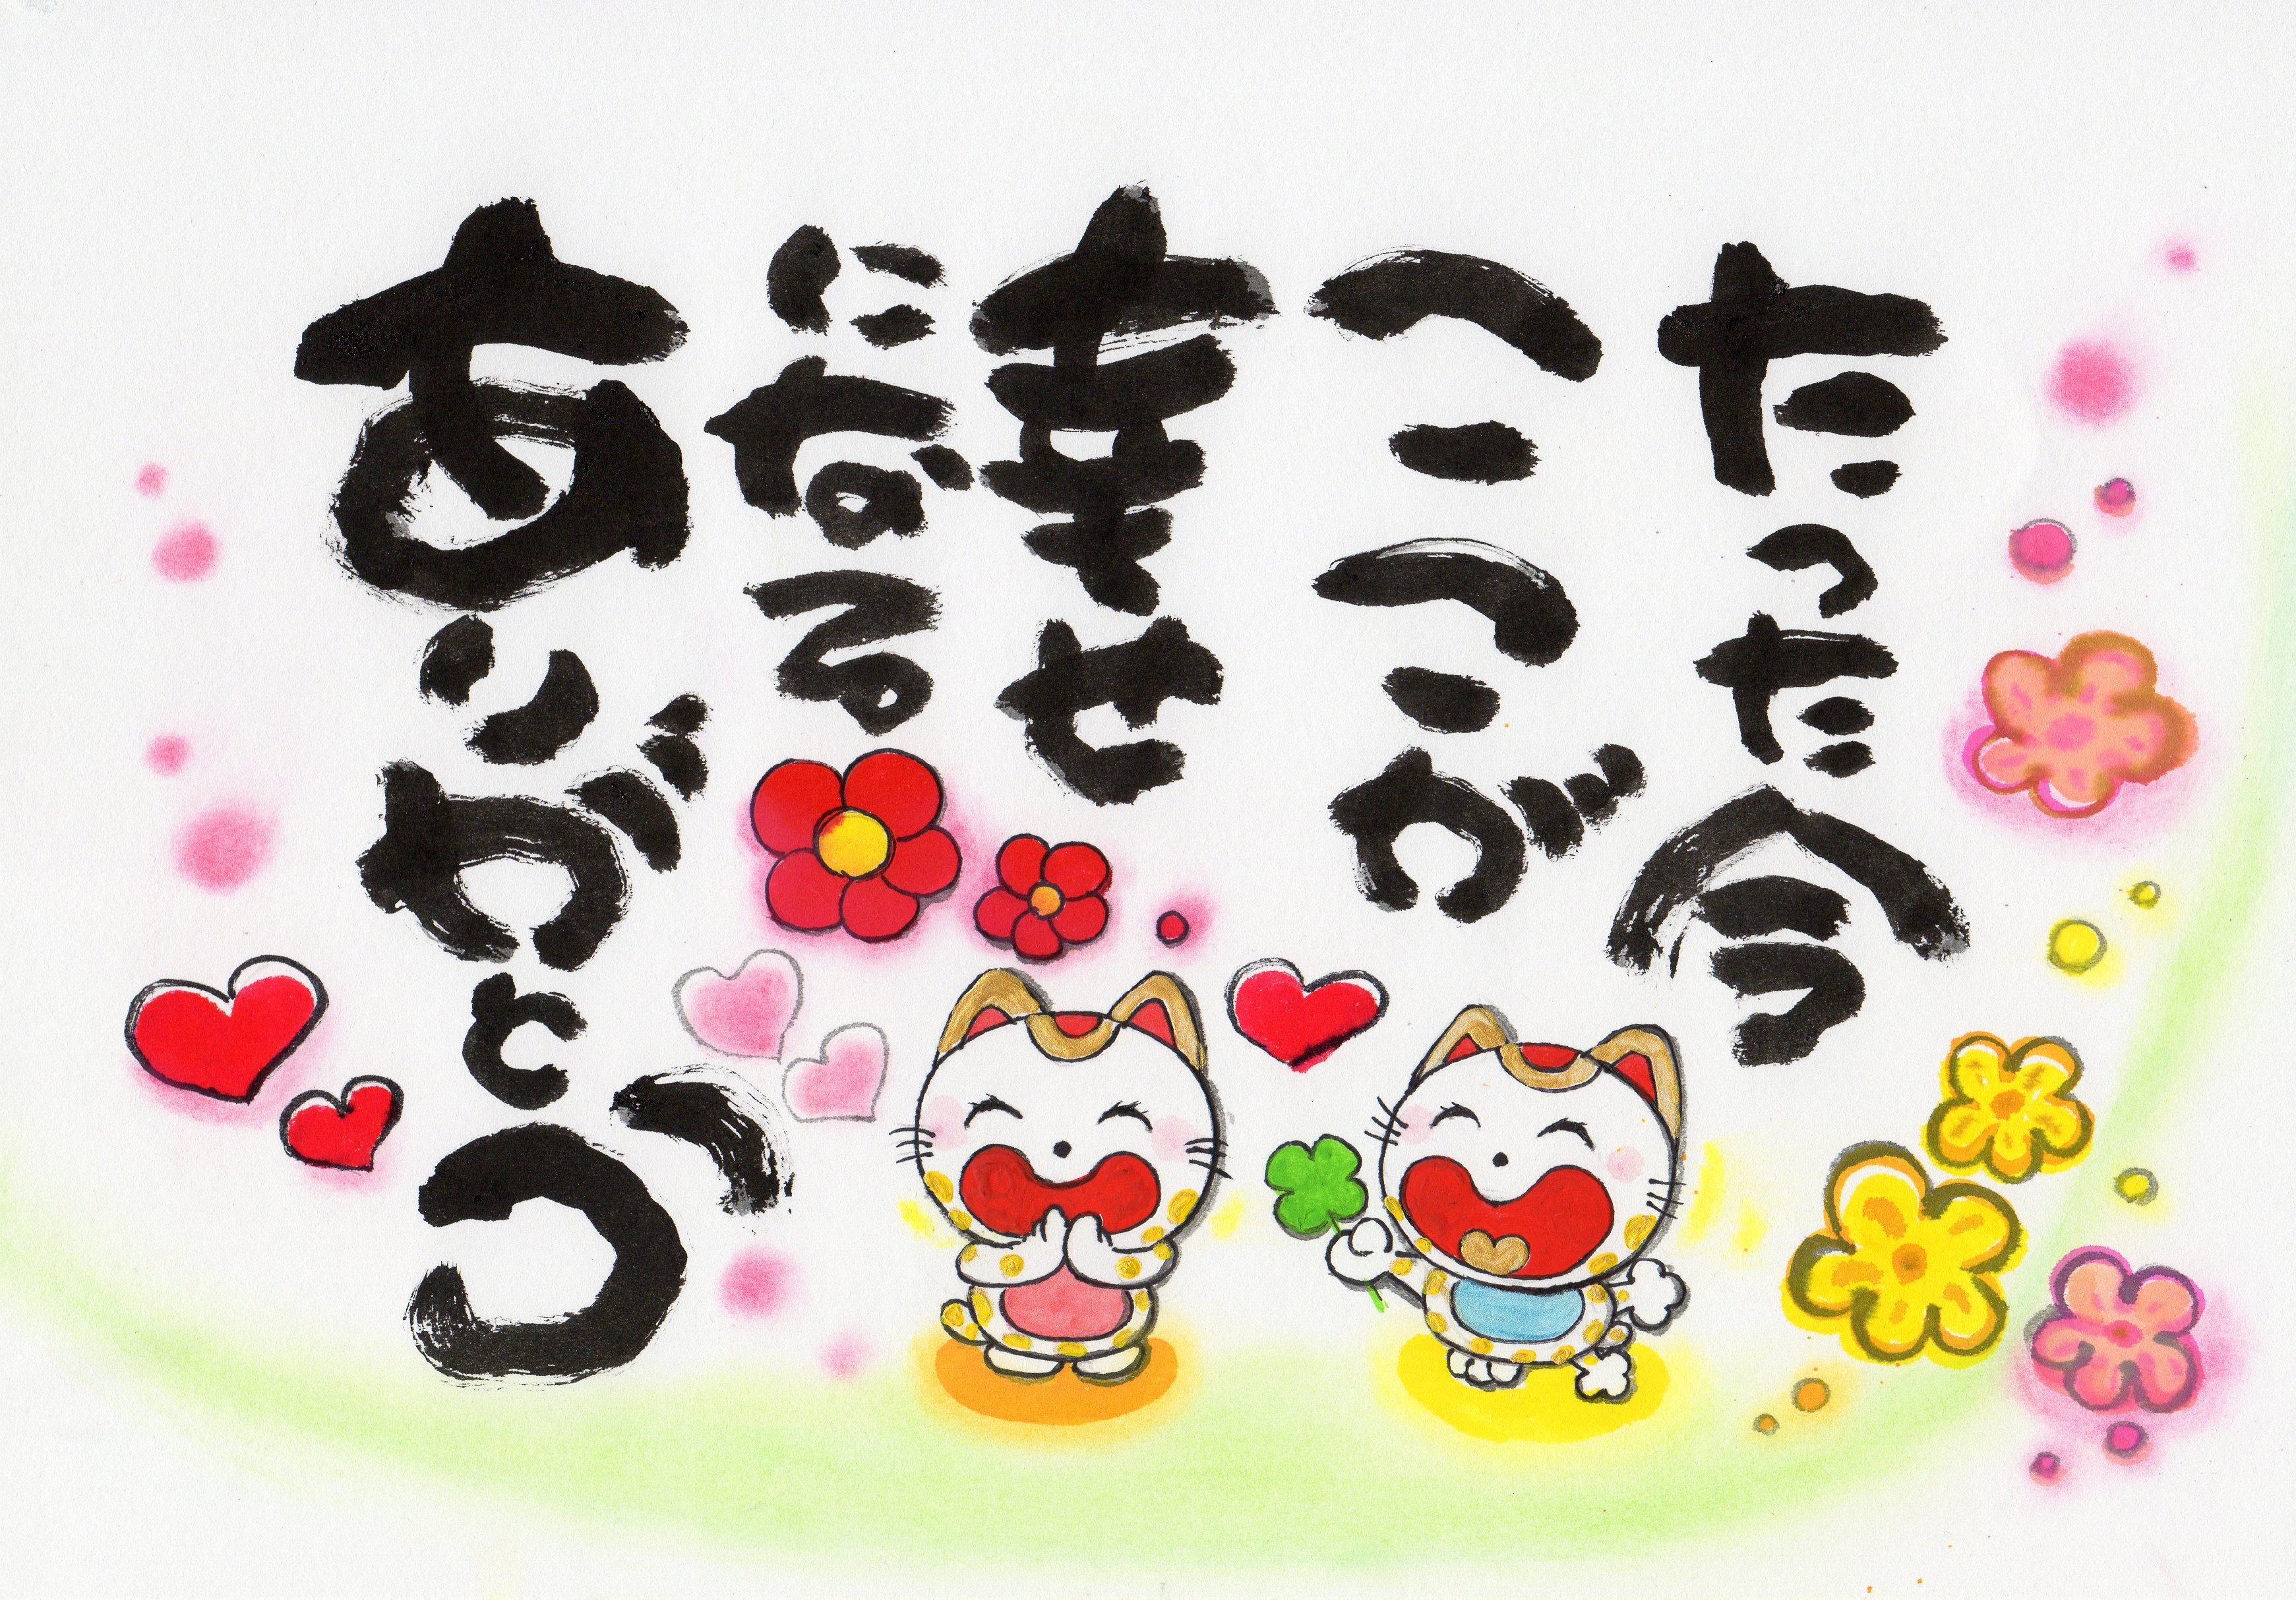 たった今
こころが
幸せ
になる
ありがとう